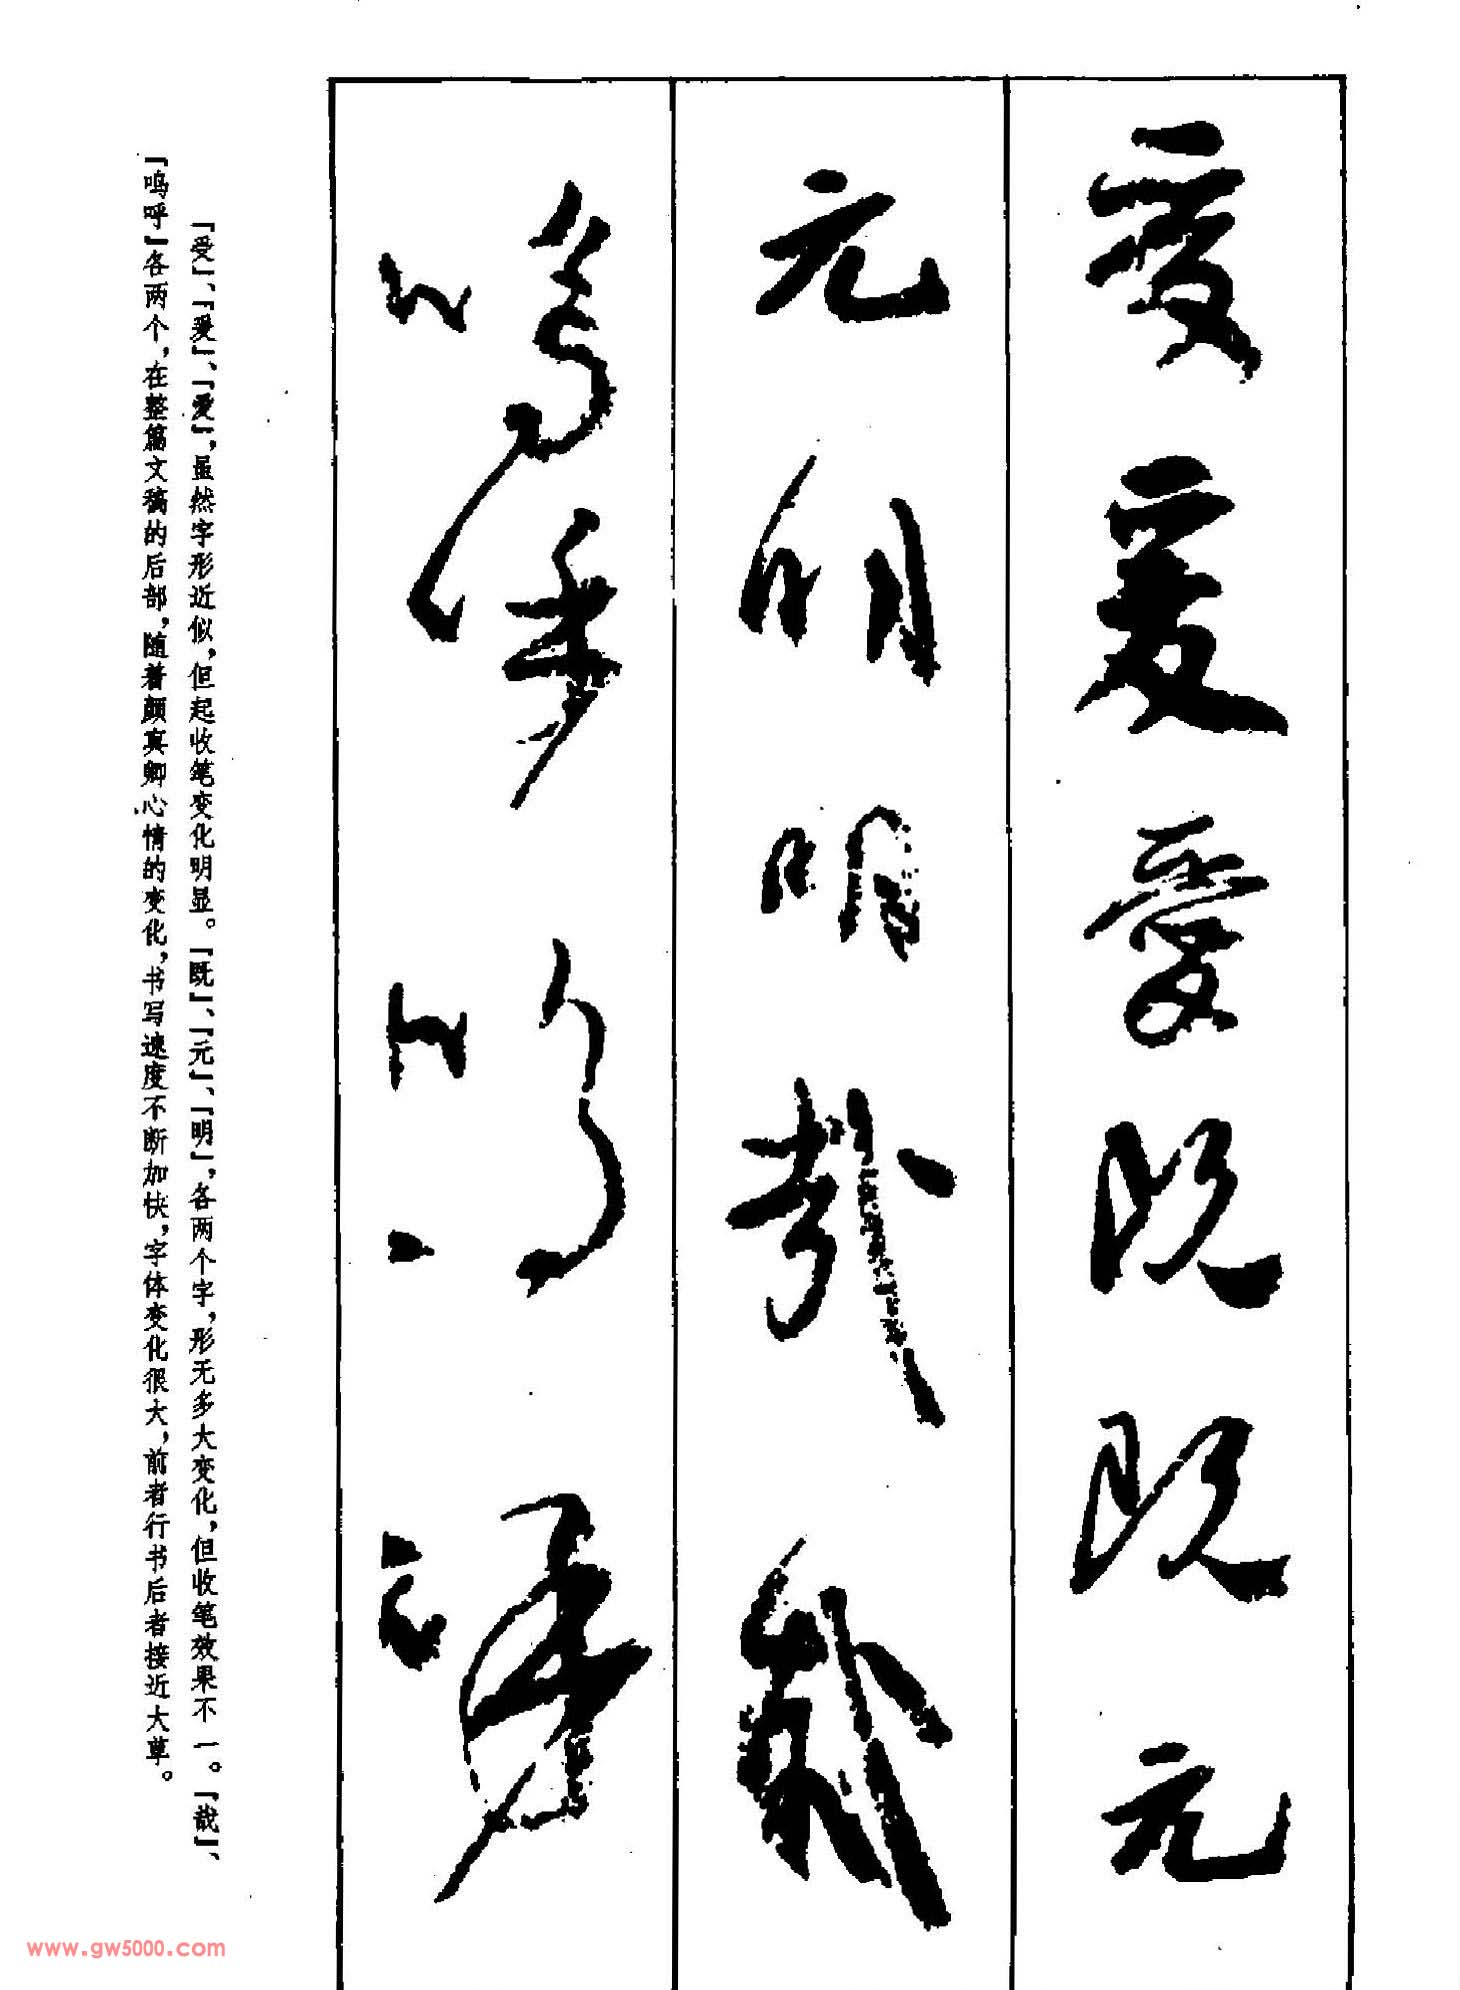 受爰愛既既元
元明明哉哉
嗚呼嗚呼
「受」、「爰」、「爱」，虽然字形近似，但起收笔变化明显。「既」、「元」、「明」，各两个字，形无多大变化，但收笔效果不一。「哉」、
「呜呼」各两个，在整篇文稿的后部，随着颜真卿心情的变化，书写速度不断加快，字体变化很大，前者行书后者接近大草。
www.gw5000.com